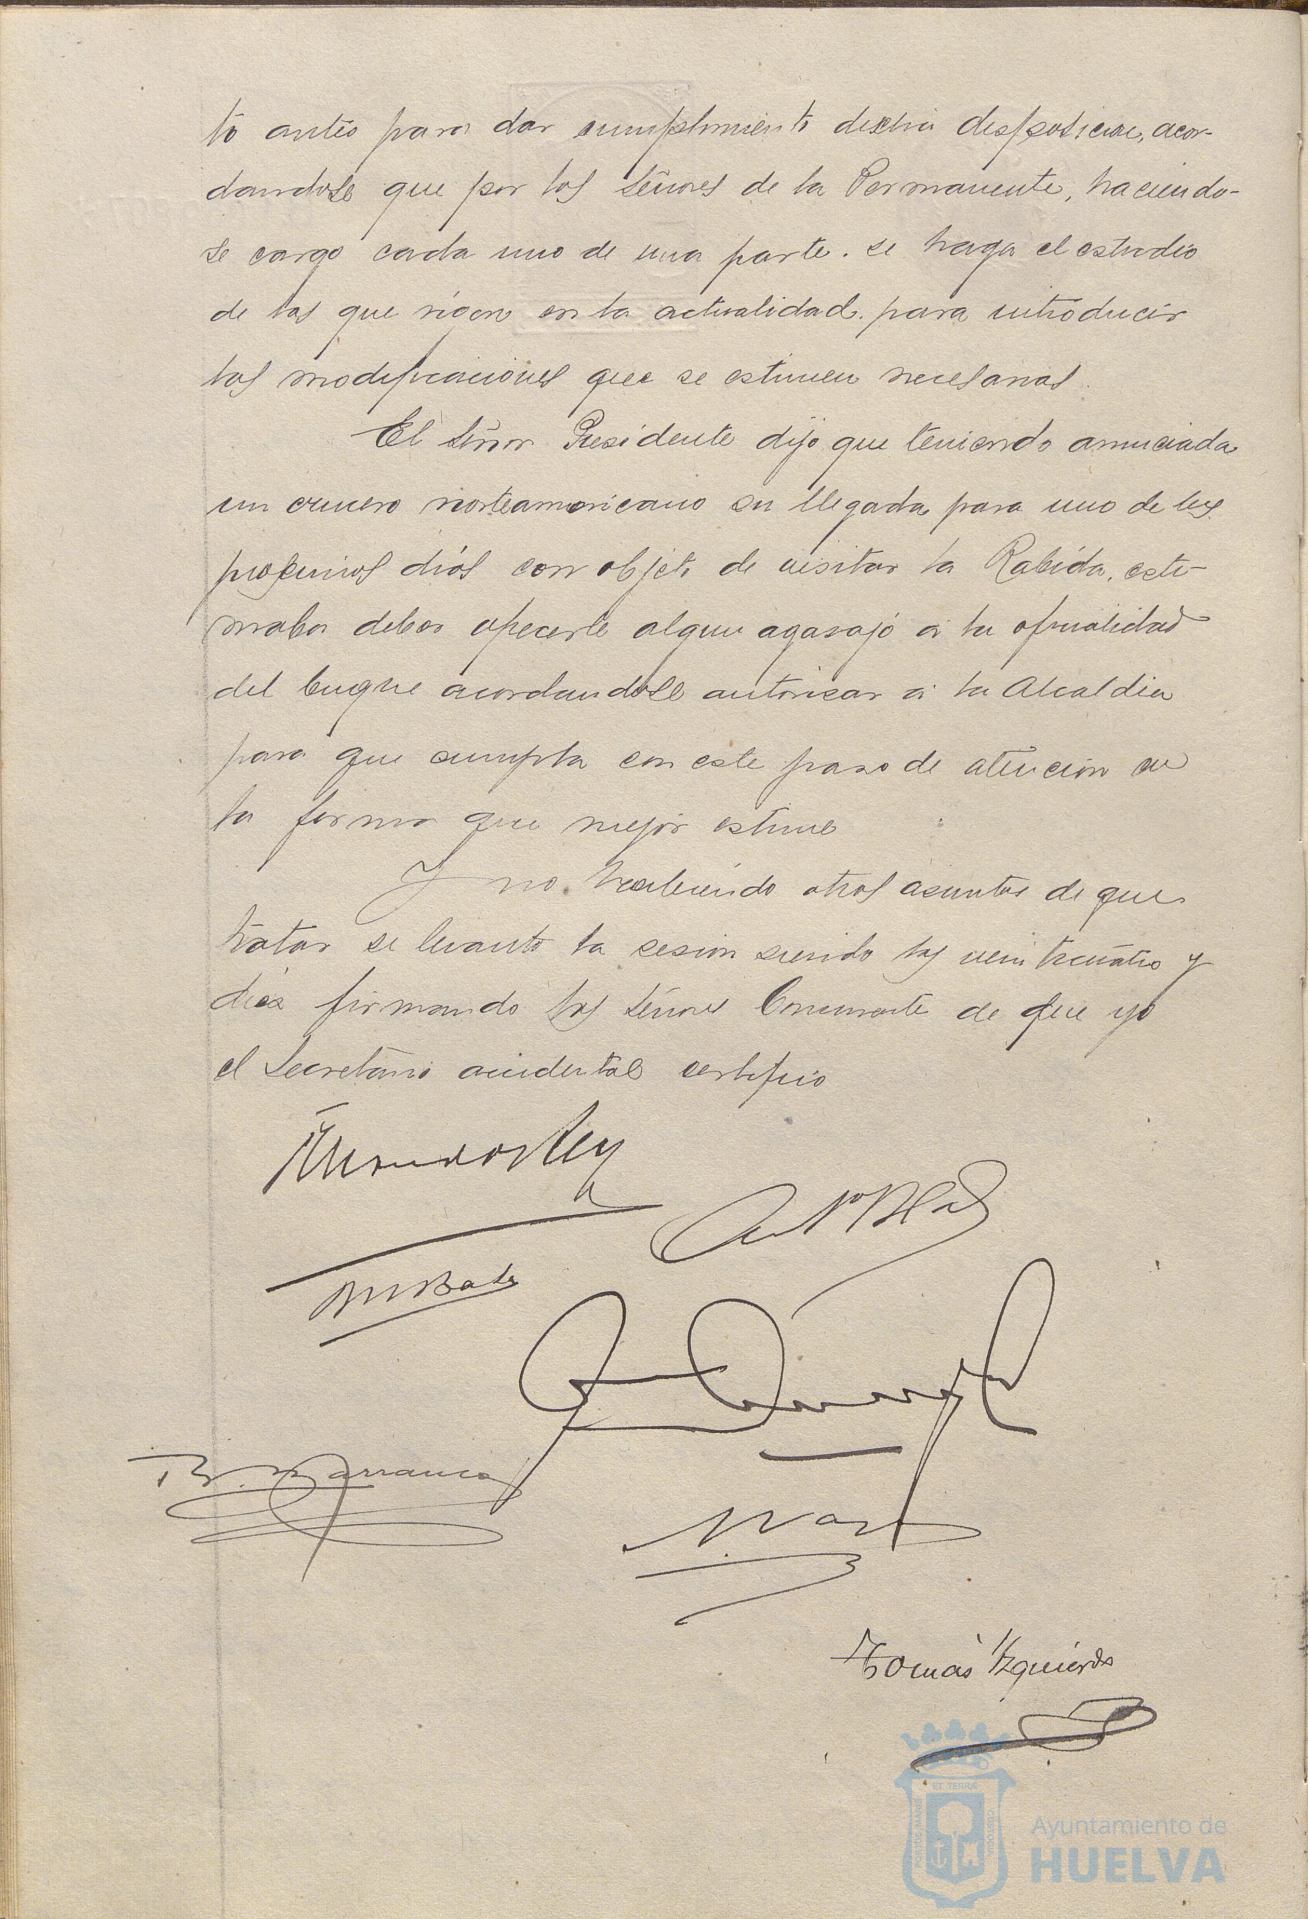 to antes para dar cumplimiento dicha disposicion, acor-
dandose que por los Señores de la Permanente, haciendo-
se cargo cada uno de una parte. se haga el estudio
de las que rigen en la actualidad. para introducir
las modificaciones que se estimen necesarias.
El Señor Presidente dijo que teniendo anunciada
un crucero norteamericano su llegada para uno de los
proximos dias con objeto de visitar la Rabida, esti-
maba deber ofrecerle algun agasajo a la oficialidad
del buque acordandose autorizar a la Alcaldia
para que cumpla con este paso de atencion en
la forma que mejor estime
Y no habiendo otros asuntos de que
tratar se levanto la sesion siendo las veinticuatro y
diez firmando los Señores Concurrente de que yo
el Secretario accidental certifico
Barranca
Tomás Izquierdo
ET TERRÆ
Ayuntamiento de
HUELVA